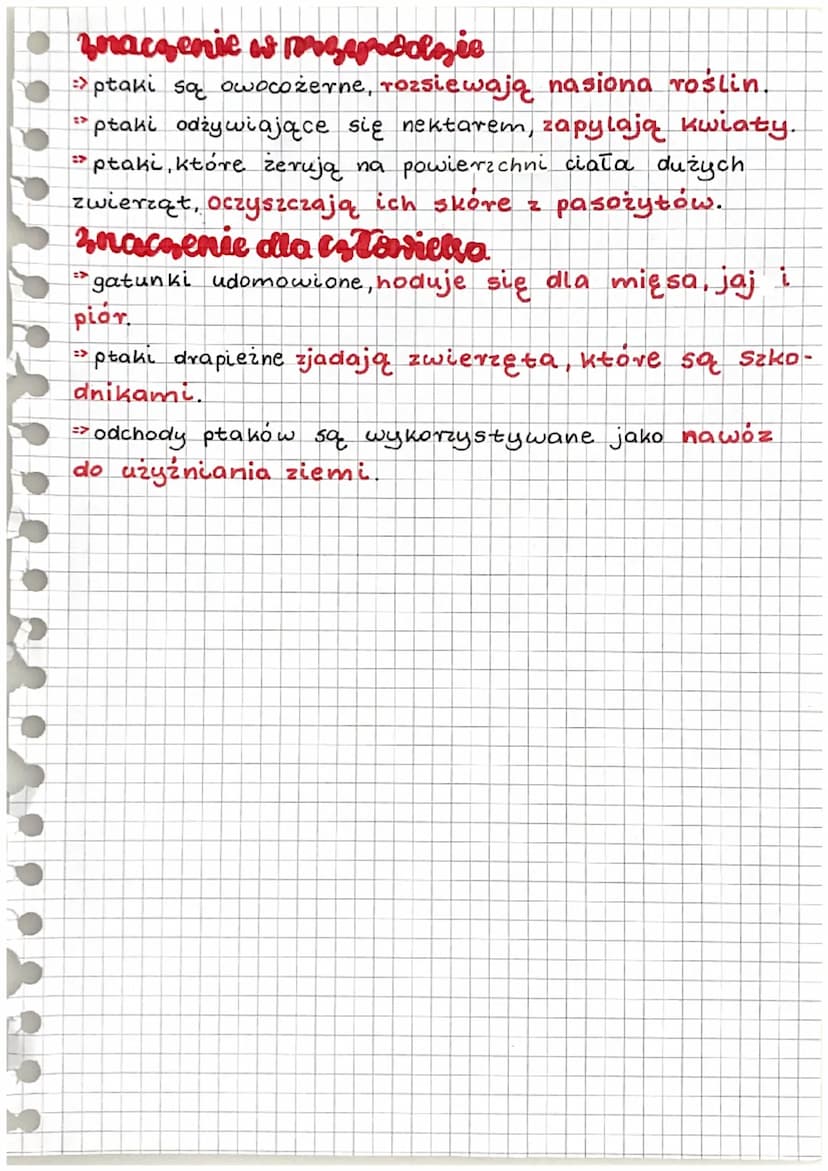 znaczenie w przyrodzie
=> ptaki są owocożerne, rozsiewają nasiona roślin.
=> ptaki odżywiające się nektarem, zapylają kwiaty.
=> ptaki, które żerują na powierzchni ciała dużych
zwierząt, oczyszczają ich skóre z pasożytów.
znaczenie dla człowieka
=> gatunki udomowione, hoduje się dla mięsa, jaj i
piór.
=> ptaki drapieżne zjadają zwierzęta, które są szko-
dnikami.
=> odchody ptaków są wykorzystywane jako nawóz
do użyźniania ziemi.